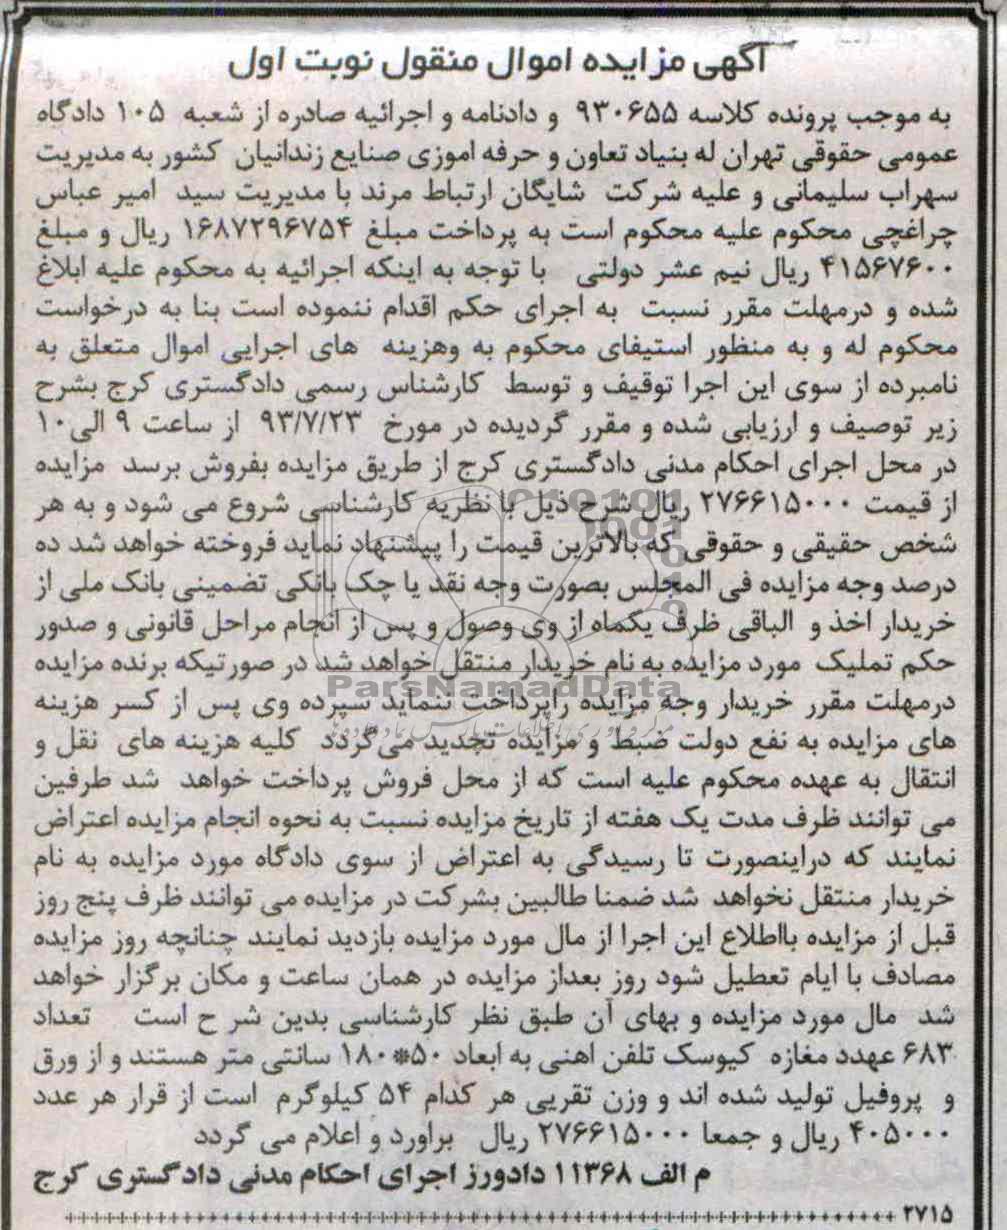 آگهی مزایده اموال منقول نوبت اول
به موجب پرونده کلاسه ۹۳۰۶۵۵ و دادنامه و اجرائیه صادره از شعبه ۱۰۵ دادگاه
عمومی حقوقی تهران له بنیاد تعاون و حرفه اموزی صنایع زندانیان کشور به مدیریت
سهراب سلیمانی و علیه شرکت شایگان ارتباط مرند با مدیریت سید امیر عباس
چراغچی محکوم علیه محکوم است به پرداخت مبلغ ۱۶۸۷۲۹۶۷۵۴ ریال و مبلغ
۴۱۵۶۷۶۰۰ ریال نیم عشر دولتی با توجه به اینکه اجرائیه به محکوم علیه ابلاغ
شده و درمهلت مقرر نسبت به اجرای حکم اقدام ننموده است بنا به درخواست
محکوم له و به منظور استیفای محکوم به وهزینه های اجرایی اموال متعلق به
نامبرده از سوی این اجرا توقیف و توسط کارشناس رسمی دادگستری کرج بشرح
زیر توصیف و ارزیابی شده و مقرر گردیده در مورخ ۹۳/۷/۲۳ از ساعت ۹ الی۱۰
در محل اجرای احکام مدنی دادگستری کرج از طریق مزایده بفروش برسد مزایده
از قیمت ۲۷۶۶۱۵۰۰۰ ریال شرح ذیل با نظریه کارشناسی شروع می شود و به هر
شخص حقیقی و حقوقی که بالاترین قیمت را پیشنهاد نماید فروخته خواهد شد ده
درصد وجه مزایده فی المجلس بصورت وجه نقد یا چک بانکی تضمینی بانک ملی از
خریدار اخذ و الباقی ظرف یکماه از وی وصول و پس از انجام مراحل قانونی و صدور
حکم تملیک مورد مزایده به نام خریدار منتقل خواهد شد در صورتیکه برنده مزایده
ParsNamadData
درمهلت مقرر خریدار وجه مزایده راپرداخت ننماید سپرده وی پس از کسر هزینه
های مزایده به نفع دولت ضبط و مزایده تجدید می گردد کلیه هزینه های نقل و
انتقال به عهده محکوم علیه است که از محل فروش پرداخت خواهد شد طرفین
می توانند ظرف مدت یک هفته از تاریخ مزایده نسبت به نحوه انجام مزایده اعتراض
نمایند که دراینصورت تا رسیدگی به اعتراض از سوی دادگاه مورد مزایده به نام
خریدار منتقل نخواهد شد ضمنا طالبین بشرکت در مزایده می توانند ظرف پنج روز
قبل از مزایده بااطلاع این اجرا از مال مورد مزایده بازدید نمایند چنانچه روز مزایده
مصادف با ایام تعطیل شود روز بعداز مزایده در همان ساعت و مکان برگزار خواهد
شد مال مورد مزایده و بهای آن طبق نظر کارشناسی بدین شر ح است تعداد
۶۸۳ عهدد مغازه کیوسک تلفن اهنی به ابعاد ۵۰*۱۸۰ سانتی متر هستند و از ورق
و پروفیل تولید شده اند و وزن تقریبی هر کدام ۵۴ کیلوگرم است از قرار هر عدد
۴۰۵۰۰۰ ریال و جمعا ۲۷۶۶۱۵۰۰۰ ریال براورد و اعلام می گردد
م الف ۱۱۳۶۸ دادورز اجرای احکام مدنی دادگستری کرج
۲۷۱۵